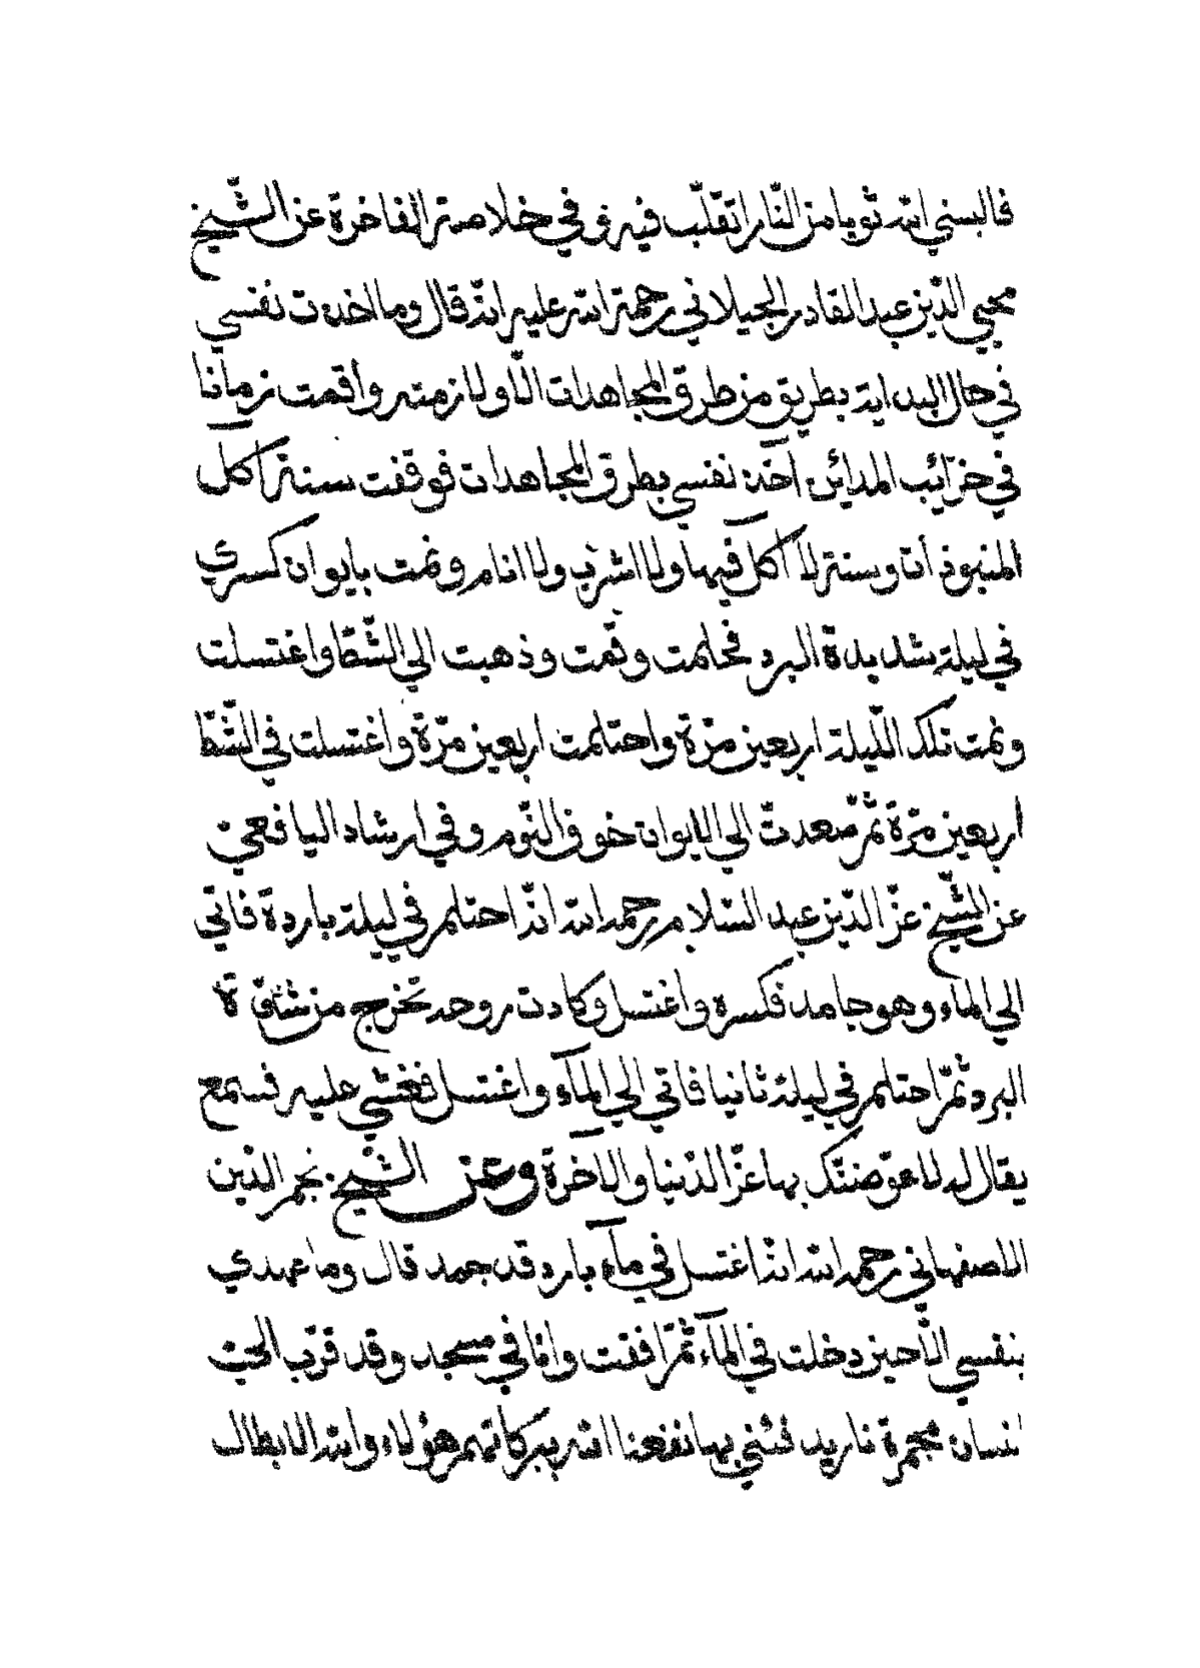 فالبسني الله ثوبا من النّار اتقلّب فيه وفي خلاصة الفاخرة عن الشّيخ
محيي الدّين عبد القادر الجيلاني رحمة الله عليه انّه قال وما اخذت نفسي
في حال البداية بطريق من طرق المجاهدات الّا ولازمته واقمت زمانا
في خرائب المدائن آخذ نفسي بطرق المجاهدات فوقفت سنة آكل
المنبوذات وسنة لا آكل فيها ولا اشرب ولا انام ونمت بايوان كسرى
في ليلة شديدة البرد فحلمت وقمت وذهبت الي الشّطّ واغتسلت
ونمت تلك اللّيلة اربعين مرّة واحتلمت اربعين مرّة واغتسلت في الشّطّ
اربعين مرّة ثمّ صعدتّ الي الايوان خوف النّوم وفي ارشاد اليافعيّ
عن الشّيخ عزّ الدّين عبد السّلام رحمه الله انّه احتلم في ليلة باردة فاتي
الي الماء وهو جامد فكسره واغتسل وكادت روحه تخرج من شدّة
البرد ثمّ احتلم في ليلة ثانيا فاتي الي المآء واغتسل فغشي عليه فسمع
يقال له لاعوّضنّك بها عزّ الدّنيا والآخرة وعن الشّيخ نجم الدّين
الاصفهاني رحمه الله انّه اغتسل في مآء بارد قد جمد قال وما عهدي
بنفسي الّا حين دخلت في المآء ثمّ افقت وانا في مسجد وقد قرّب اليّ
انسان مجمرة نار يدفئني بها نفعنا الله ببركاتهم هؤلاء والله الابطال